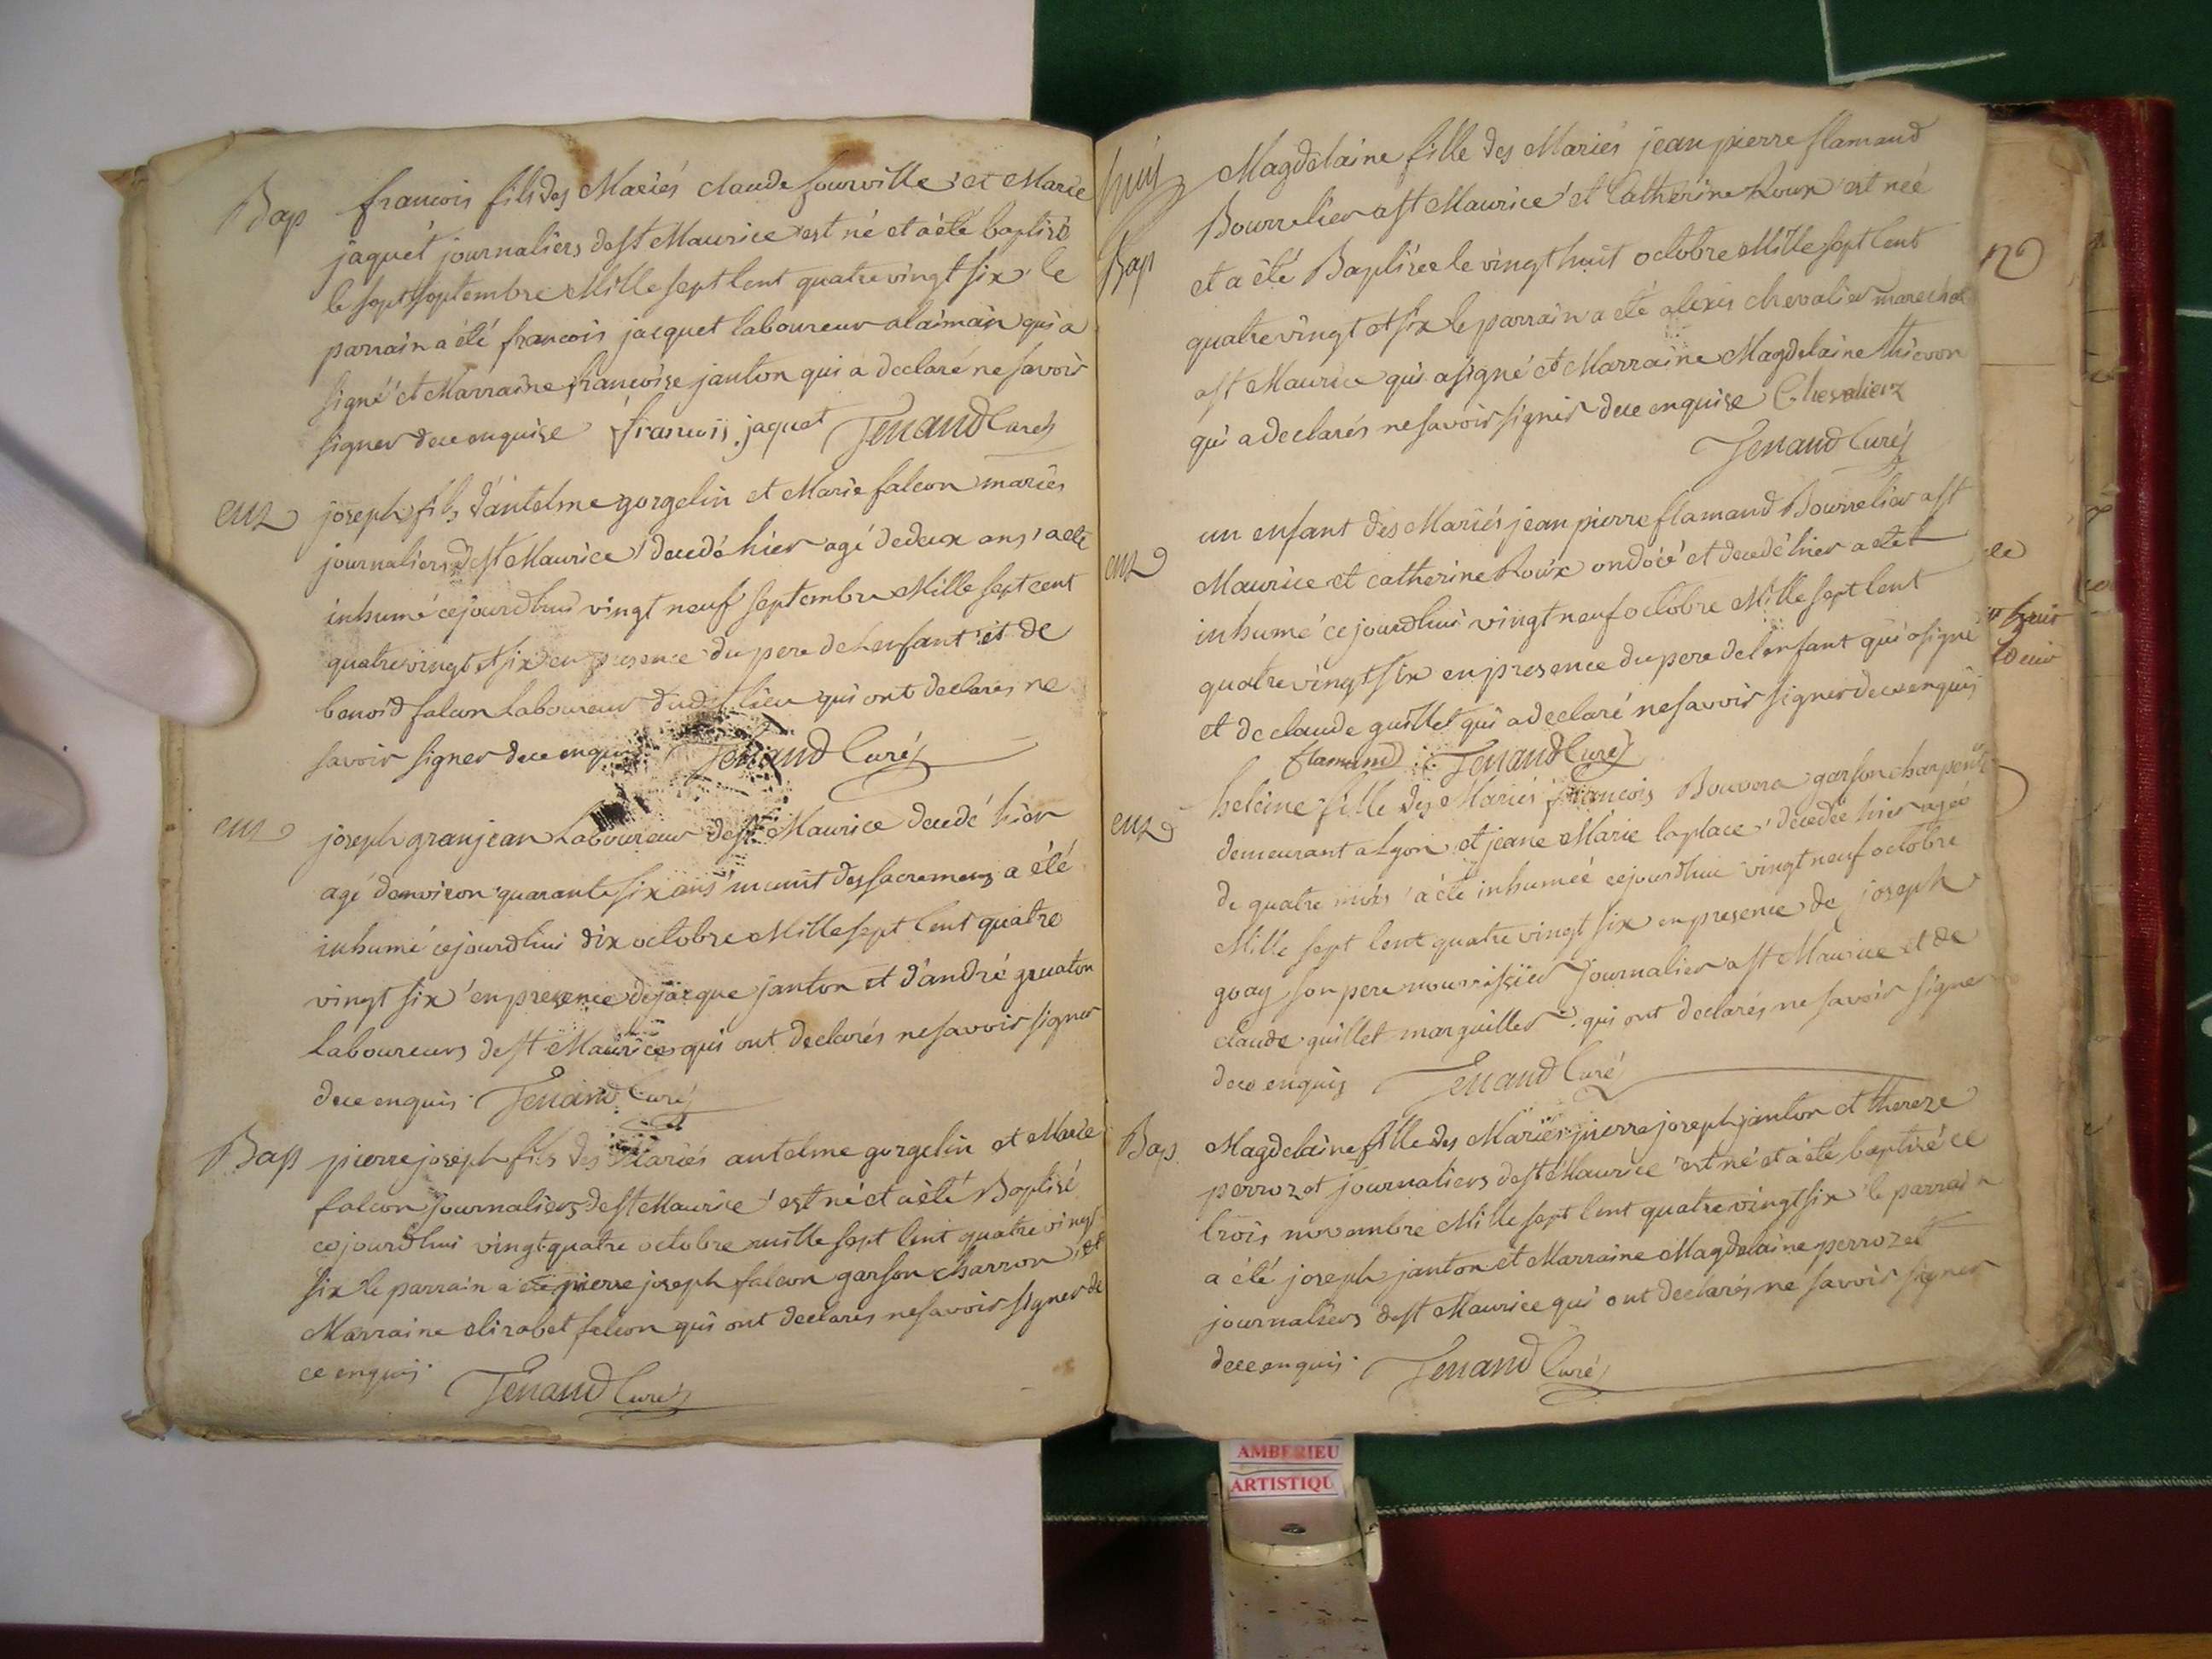 Bap francois fils des Mariés claude fourville et Marie
jaquet journaliers de st Maurice est né et a été baptisé
le sept septembre Mille sept Cent quatre vingt six le
parrain a été francois jacquet laboureur alaiman qui a
signé et Marraine francoise janton qui a declaré ne savoir
signer de ce enquise francois jaquet Tenand Curé
enz joseph fils d'antelme gorgelin et Marie falcon mariés
journaliers de st Maurice decedé hier agé de deux ans a eté
inhumé cejourdhui vingt neuf septembre Mille sept cent
quatre vingt et six en presence du pere de Lenfant et de
benoid falcon Laboureur dudt lieu qui ont declarés ne
savoir signer de ce enquis Tenand Curé
enz joseph granjean Laboureur de st Maurice decedé hier
agé denviron quarante six ans munit des sacremens a été
inhumé cejourdhui dix octobre Mille sept Cent quatre
vingt six en presence de jacque janton et d'andré gruaton
Laboureurs de st Maurice qui ont declarés ne savoir signer
de ce enquis Tenand Curé
Bap pierre joseph fils des Mariés antelme gorgelin et Marie
falcon journaliers de st Maurice est né et a été Baptisé
cejourdhui vingt quatre octobre mille sept Cent quatre vingt
six le parrain a été pierre joseph falcon garson charron et
Marraine elizabet falcon qui ont declarés ne savoir signer de
ce enquis Tenand Curé
Magdelaine fille des Mariés jean pierre flamand
Bourrelier a st Maurice et Catherine Roux est neé
Bap et a été Baptisée le vingt huit octobre Mille sept Cent
quatre vingt et six le parrain a été alexis chevalier marechal
a st Maurice qui a signé et Marraine Magdelaine thievon
qui a declarés ne savoir signer de ce enquise Chevalier
Tenand Curé
un enfant des Mariés jean pierre flamand Bourrelier a st
enz Maurice et catherine Roux ondoié et decedé hier a eté
inhumé cejourdhui vingt neuf octobre Mille sept Cent
quatre vingt six en presence du pere de lenfant qui a signé
et de claude guillet qui a declaré ne savoir signer de ce enquis
flamand Tenand Curé
enz heleine fille des Mariés francois Bouvora garson charpentié
demeurant a Lyon et jeane Marie laplace decedée hier ageé
de quatre mois a été inhumée cejourdhui vingt neuf octobre
Mille sept Cent quatre vingt six en presence de joseph
goay son pere nourrissier journalier a st Maurice et de
claude guillet marguiller qui ont declarés ne savoir signer
de ce enquis Tenand Curé
Bap Magdelaine fille des Mariés pierre joseph janton et thereze
perrozet journaliers de st Maurice est né et a été baptisé ce
trois novembre Mille sept Cent quatre vingt six le parrain
a été joseph janton et Marraine Magdelaine perrozet
journaliers de st Maurice qui ont declarés ne savoir signer
de ce enquis Tenand Curé
AMBERIEU
ARTISTIQU